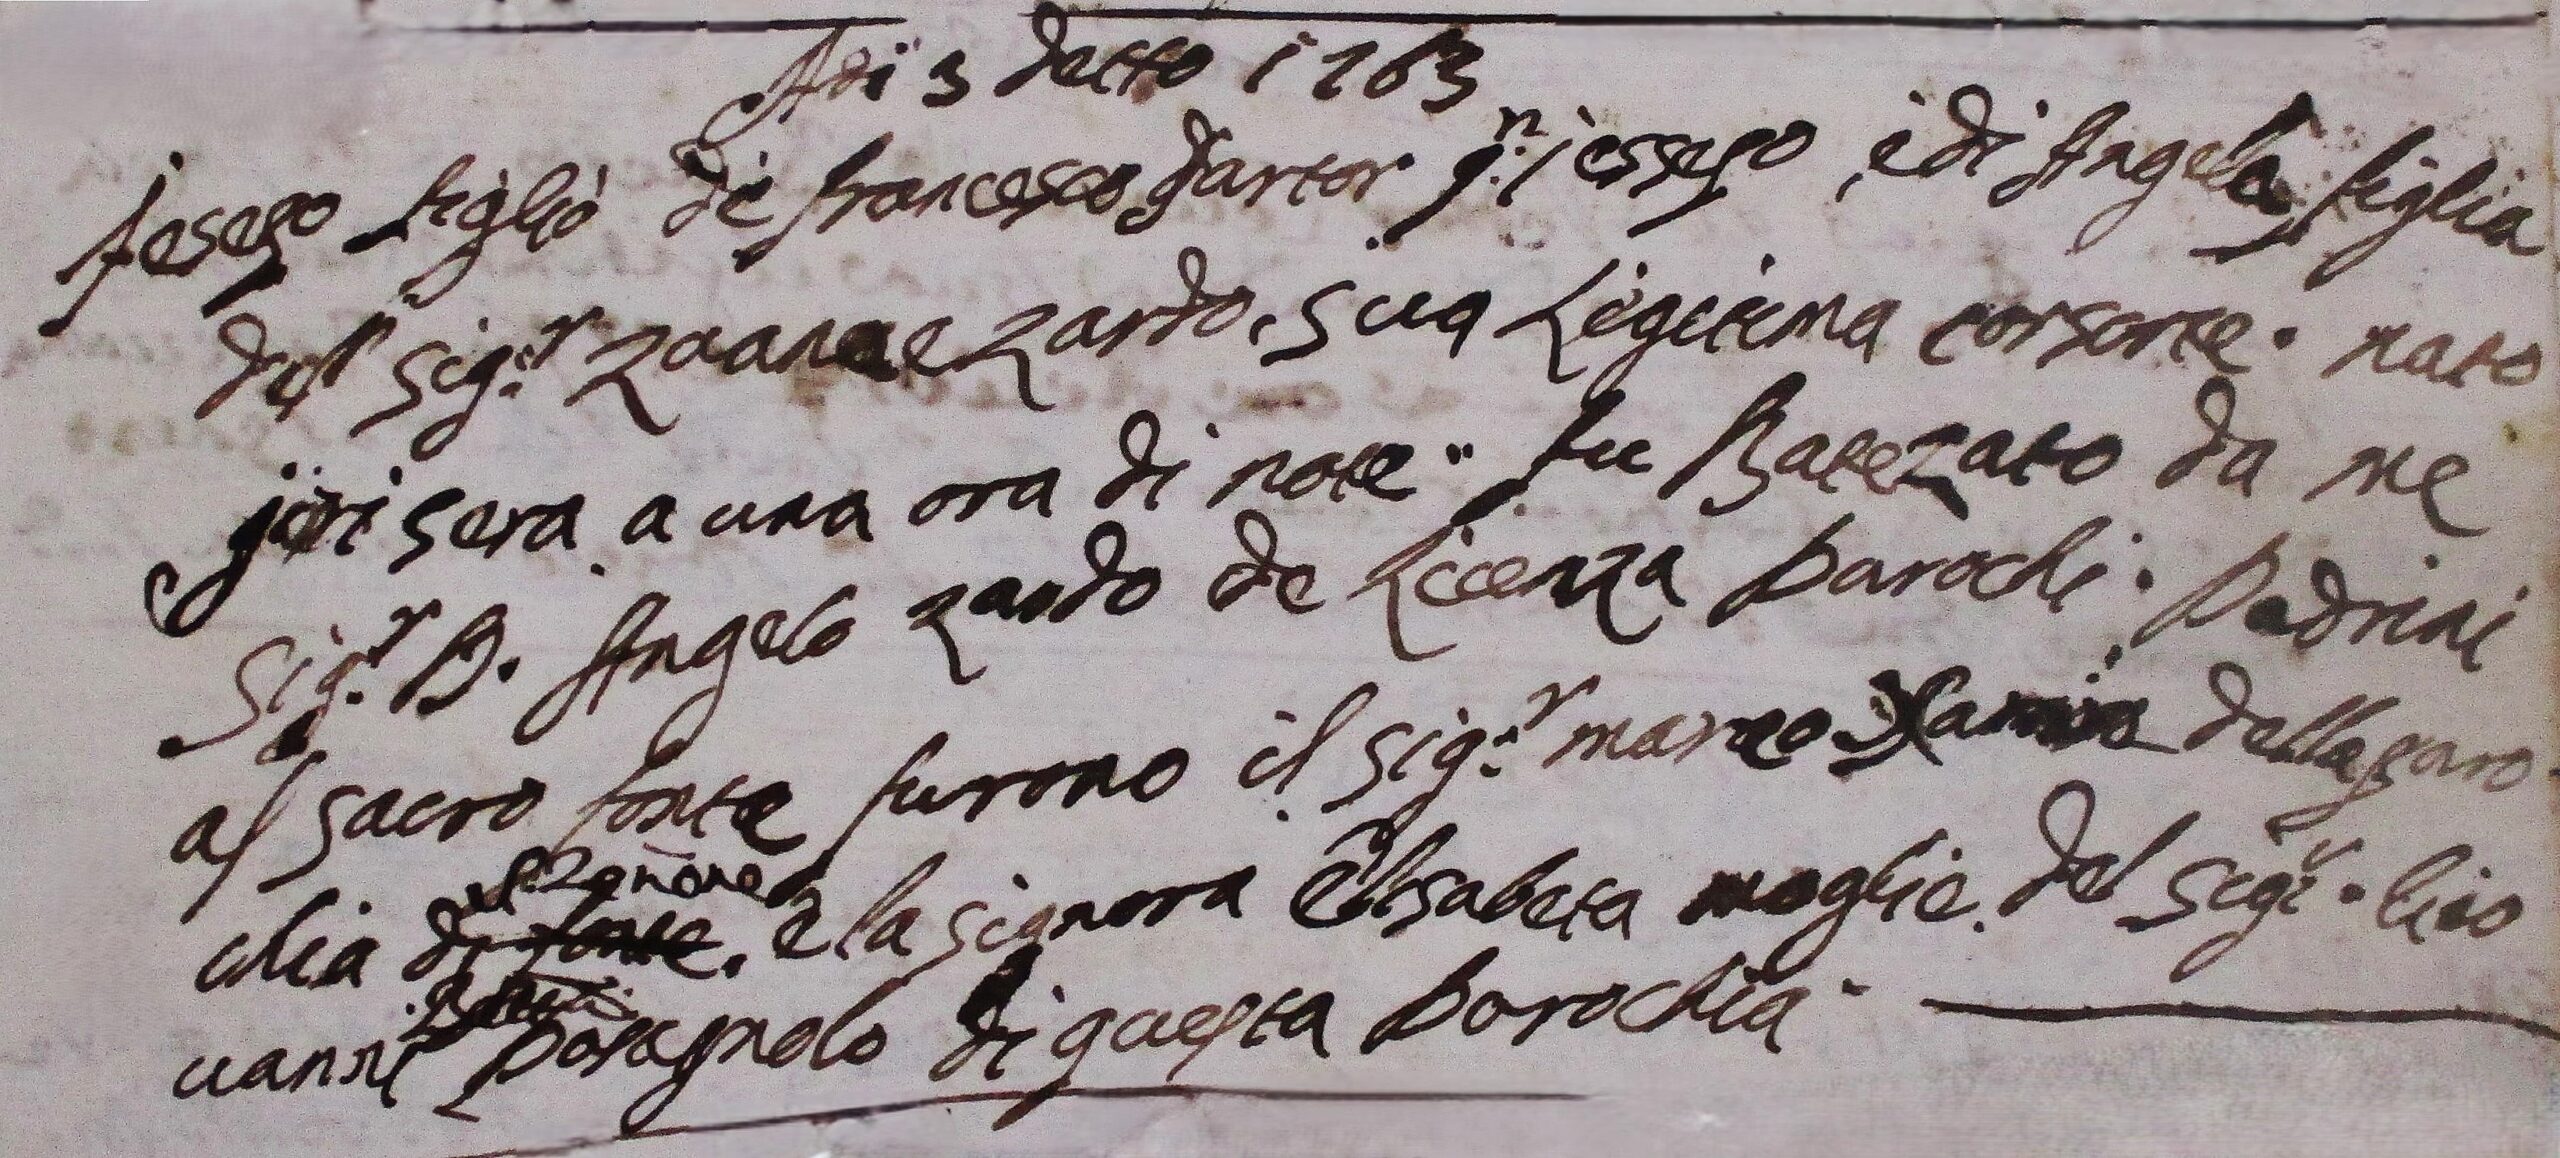 Adi 3 detto 1763
Jesepo figlio di francesco Dartor q.n iessepo, è di Angela figlia
del Sig.r Zuanne Zardo, sua Legitima consorte. nato
jeri sera a una ora di note. fu Batezato da me
Sig.r D. Angelo Zardo de Licenza Parochi. Padrini
al sacro fonte furono il Sig.r marco della paro
chia di fonte, e la signora Elisabeta moglie del Sig.r Gio
uanni di questa Parochia.